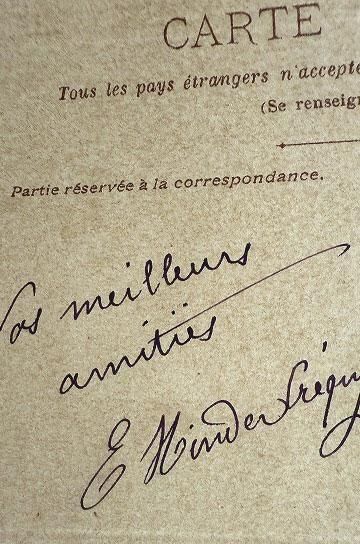 CARTE
Tous les pays étrangers n'accepte
(Se renseign
Partie réservée à la correspondance.
Nos meilleurs
amitiés
E